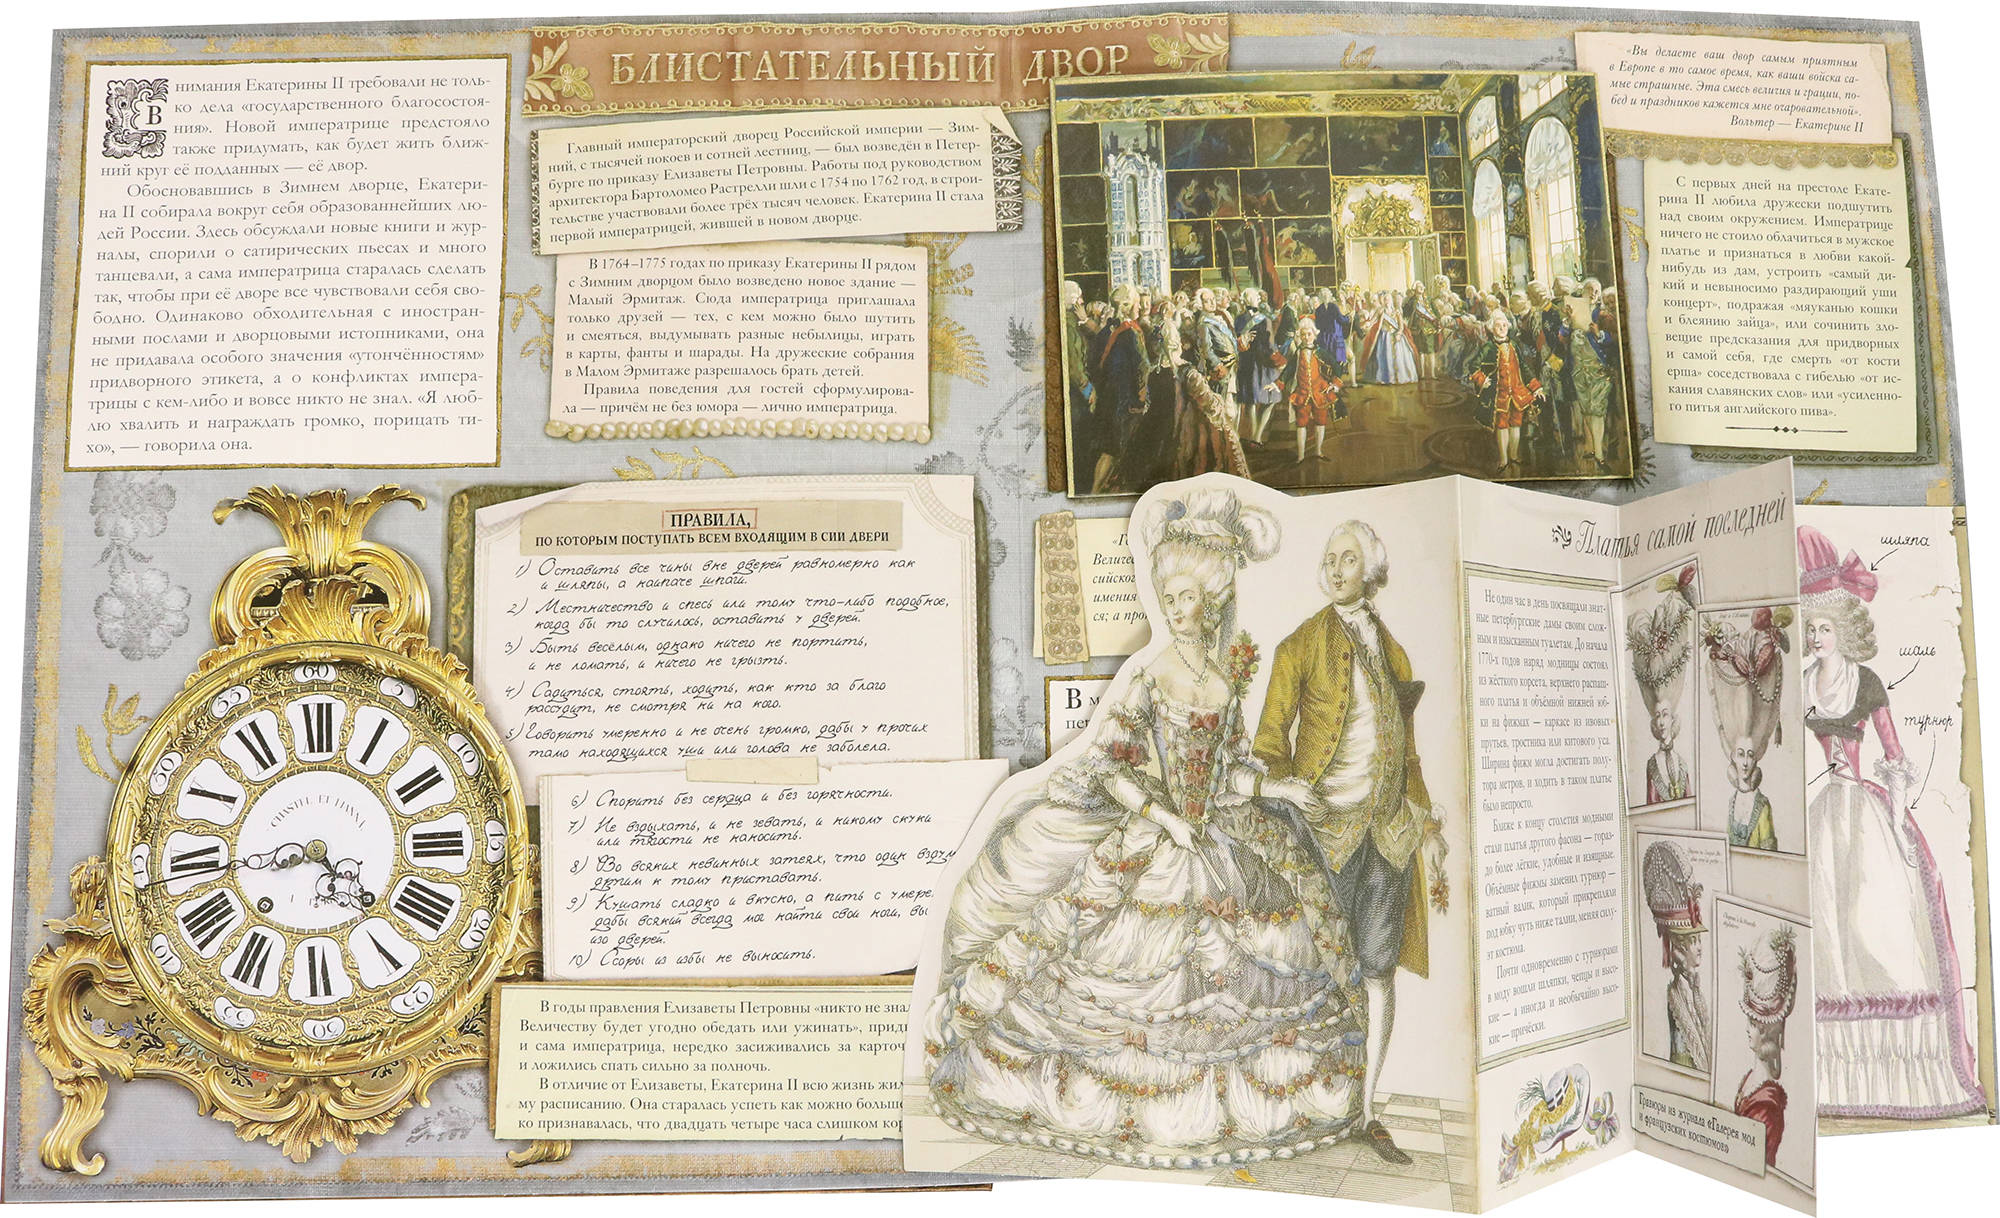 БЛИСТАТЕЛЬНЫЙ ДВОР
Внимания Екатерины II требовали не толь-
ко дела «государственного благосостоя-
ния». Новой императрице предстояло
также придумать, как будет жить ближ-
ний круг её подданных — её двор.
Обосновавшись в Зимнем дворце, Екатери-
на II собирала вокруг себя образованнейших лю-
дей России. Здесь обсуждали новые книги и жур-
налы, спорили о сатирических пьесах и много
танцевали, а сама императрица старалась сделать
так, чтобы при её дворе все чувствовали себя сво-
бодно. Одинаково обходительная с иностран-
ными послами и дворцовыми истопниками, она
не придавала особого значения «утончённостям»
придворного этикета, а о конфликтах импера-
трицы с кем-либо и вовсе никто не знал. «Я люб-
лю хвалить и награждать громко, порицать ти-
хо», — говорила она.
Главный императорский дворец Российской империи — Зим-
ний, с тысячей покоев и сотней лестниц, — был возведён в Петер-
бурге по приказу Елизаветы Петровны. Работы под руководством
архитектора Бартоломео Растрелли шли с 1754 по 1762 год, в строи-
тельстве участвовали более трёх тысяч человек. Екатерина II стала
первой императрицей, жившей в новом дворце.
В 1764–1775 годах по приказу Екатерины II рядом
с Зимним дворцом было возведено новое здание —
Малый Эрмитаж. Сюда императрица приглашала
только друзей — тех, с кем можно было шутить
и смеяться, выдумывать разные небылицы, играть
в карты, фанты и шарады. На дружеские собрания
в Малом Эрмитаже разрешалось брать детей.
Правила поведения для гостей сформулирова-
ла — причём не без юмора — лично императрица.
«Вы делаете ваш двор самым приятным
в Европе в то самое время, как ваши войска са-
мые страшные. Эта смесь величия и грации, по-
бед и праздников кажется мне очаровательной».
Вольтер — Екатерине II
С первых дней на престоле Екате-
рина II любила дружески подшутить
над своим окружением. Императрице
ничего не стоило облачиться в мужское
платье и признаться в любви какой-
нибудь из дам, устроить «самый ди-
кий и невыносимо раздирающий уши
концерт», подражая «мяуканью кошки
и блеянию зайца», или сочинить зло-
вещие предсказания для придворных
и самой себя, где смерть «от кости
ерша» соседствовала с гибелью «от ис-
кания славянских слов» или «усиленно-
го питья английского пива».
ПРАВИЛА,
ПО КОТОРЫМ ПОСТУПАТЬ ВСЕМ ВХОДЯЩИМ В СИИ ДВЕРИ
1) Оставить все чины вне дверей равномерно как
и шляпы, а наипаче шпаги.
2) Местничество и спесь или тому что-либо подобное,
когда бы то случилось, оставить у дверей.
3) Быть весёлым, однако ничего не портить,
и не ломать, и ничего не грызть.
4) Садиться, стоять, ходить, как кто за благо
рассудит, не смотря ни на кого.
5) Говорить умеренно и не очень громко, дабы у прочих
тамо находящихся уши или голова не заболела.
6) Спорить без сердца и без горячности.
7) Не вздыхать, и не зевать, и никому скуки
или тягости не наносить.
8) Во всяких невинных затеях, что один вздум
другим к тому приставать.
9) Кушать сладко и вкусно, а пить с умере.
дабы всякий всегда мог найти свои ноги, вы
изо дверей.
10) Ссоры из избы не выносить.
В годы правления Елизаветы Петровны «никто не знал
Величеству будет угодно обедать или ужинать», придв
и сама императрица, нередко засиживались за карточ
и ложились спать сильно за полночь.
В отличие от Елизаветы, Екатерина II всю жизнь жил
му расписанию. Она старалась успеть как можно больше
ко признавалась, что двадцать четыре часа слишком кор
«Го
Величес
сийского
имения
ся; а про
В м
пер
Платья самой последней
Не один час в день посвящали знат-
ные петербургские дамы своим слож-
ным и изысканным туалетам. До начала
1770-х годов наряд модницы состоял
из жёсткого корсета, верхнего распаш-
ного платья и объёмной нижней юб-
ки на фижмах — каркасе из ивовых
прутьев, тростника или китового уса.
Ширина фижм могла достигать полу-
тора метров, и ходить в таком платье
было непросто.
Ближе к концу столетия модными
стали платья другого фасона — гораз-
до более лёгкие, удобные и изящные.
Объёмные фижмы заменил турнюр —
ватный валик, который прикрепляли
под юбку чуть ниже талии, меняя силу-
эт костюма.
Почти одновременно с турнюрами
в моду вошли шляпки, чепцы и высо-
кие — а иногда и необычайно высо-
кие — причёски.
Гравюры из журнала «Галерея мод
и французских костюмов»
шляпа
шаль
турнюр
60
5
10
15
20
35
50
55
XII
I
II
III
IIII
V
VI
VII
VIII
IX
X
XI
CHASTEL ET TIANNE